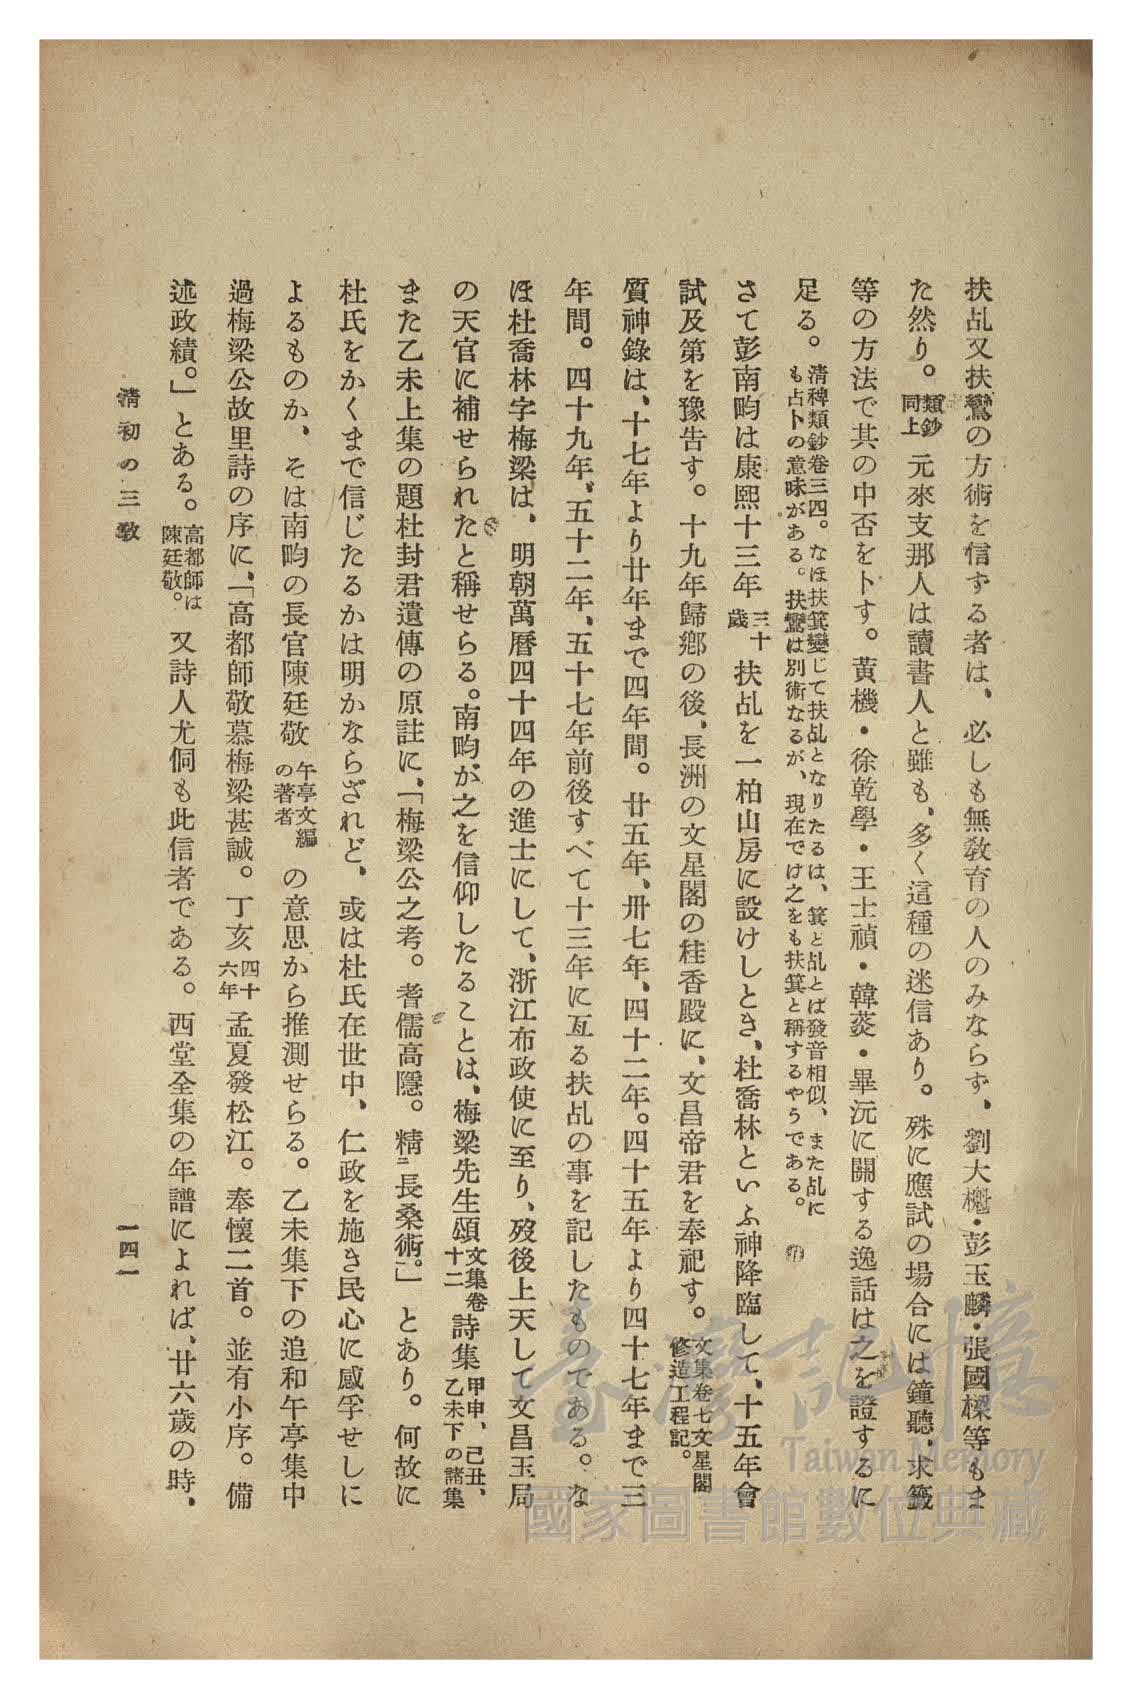 扶乩又扶鸞の方術を信ずる者は、必しも無教育の人のみならず、劉大櫆・彭玉麟・張國樑等もま
た然り。類鈔同上 元來支那人は讀書人と雖も、多く這種の迷信あり。殊に應試の場合には鐘聽・求籤
等の方法で其の中否を卜す。黃機・徐乾學・王士禎・韓菼・畢沅に關する逸話は之を證するに
足る。清稗類鈔卷三四。なほ扶箕變じて扶乩となりたるは、箕と乩とば發音相似、また乩に
も占卜の意味がある。扶鸞は別術なるが、現在では之をも扶箕と稱するやうである。
さて彭南畇は康熙十三年三十歲 扶乩を一柏山房に設けしとき、杜喬林といふ神降臨して、十五年會
試及第を豫告す。十九年歸鄕の後、長洲の文星閣の桂香殿に、文昌帝君を奉祀す。文集卷七文星閣修造工程記。
質神錄は、十七年より廿年まで四年間。廿五年、卅七年、四十二年。四十五年より四十七年まで三
年間。四十九年、五十二年、五十七年前後すべて十三年に亙る扶乩の事を記したものである。な
ほ杜喬林字梅梁は、明朝萬曆四十四年の進士にして、浙江布政使に至り、歿後上天して文昌玉局
の天官に補せられたと稱せらる。南畇が之を信仰したることは、梅梁先生頌文集卷十二 詩集甲申、己丑、乙未下の諸集
また乙未上集の題杜封君遺傳の原註に、「梅梁公之考。耆儒高隱。精ニ長桑術。」とあり。何故に
杜氏をかくまで信じたるかは明かならざれど、或は杜氏在世中、仁政を施き民心に感孚せしに
よるものか、そは南畇の長官陳廷敬午亭文編の著者 の意思から推測せらる。乙未集下の追和午亭集中
過梅梁公故里詩の序に、「高都師敬慕梅梁甚誠。丁亥四十六年 孟夏發松江。奉懷二首。並有小序。備
述政績。」とある。高都師は陳廷敬。 又詩人尤侗も此信者である。西堂全集の年譜によれば、廿六歲の時、
清初の三敎
一四一
臺灣記憶
Taiwan Memory
國家圖書館數位典藏